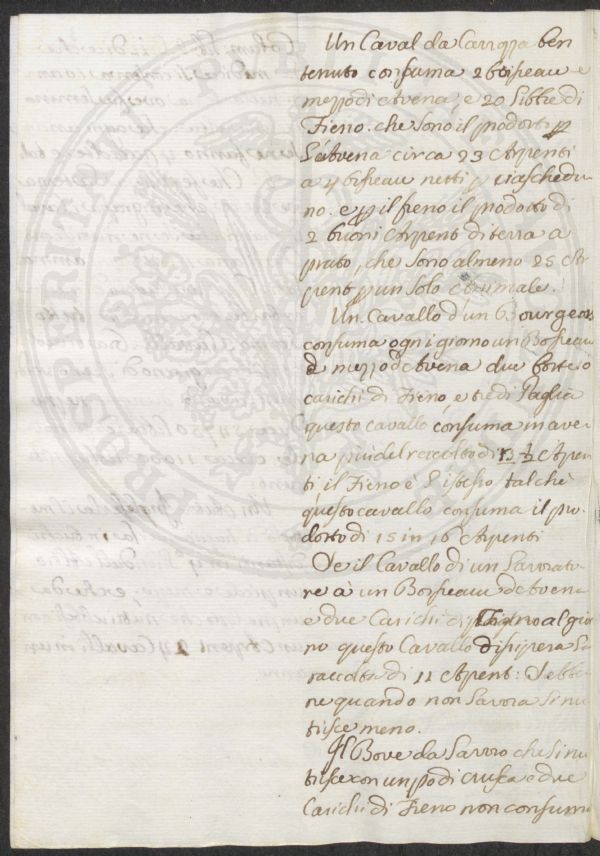 Un Caval da Carozza ben
tenuto consuma 2 boisseau e
mezzo di Avena, e 20 Libbre di
Fieno. che sono il prodotto p
L'Avena circa 23 Arpenti
a 4 boisseau netti p ciaschedu
no. e p il fieno il prodotto di
2 buoni Arpent di terra a
prato, che sono almeno 25 Ar
pent p un solo Animale.
Un Cavallo d'un Bourgeois
consuma ogni giorno un Boisseau
e mezzo de Avena due
carichi di Fieno e tre di Paglia
questo cavallo consuma in ave
na piu del raccolto di 13 ½ Arpen
ti il Fieno è l'istesso talche
questo cavallo consuma il pro
dotto di 15 in 16 Arpenti
Se il Cavallo di un Lavorato
re à un Boisseau de Avena
e due Carichi di Fieno al gior
no questo Cavallo dissipera la
raccolta di 11 Arpent: Sebbe
ne quando non Lavora si nu
trisce meno.
Il Bove da Lavoro che si nu
trisce con un po di crusca e due
Carichi di Fieno non consuma
PROSPERITATI PUBLICAE